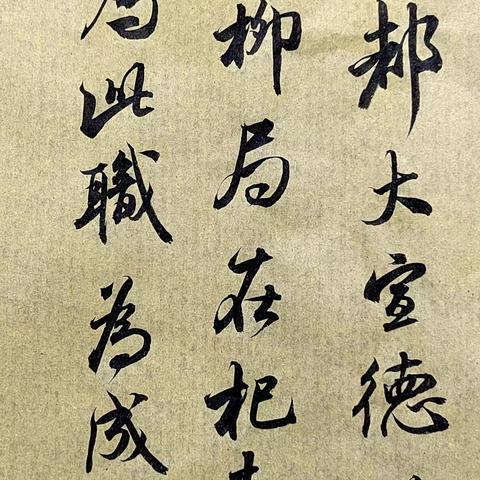 都大宣德
柳局在杞
此職為成